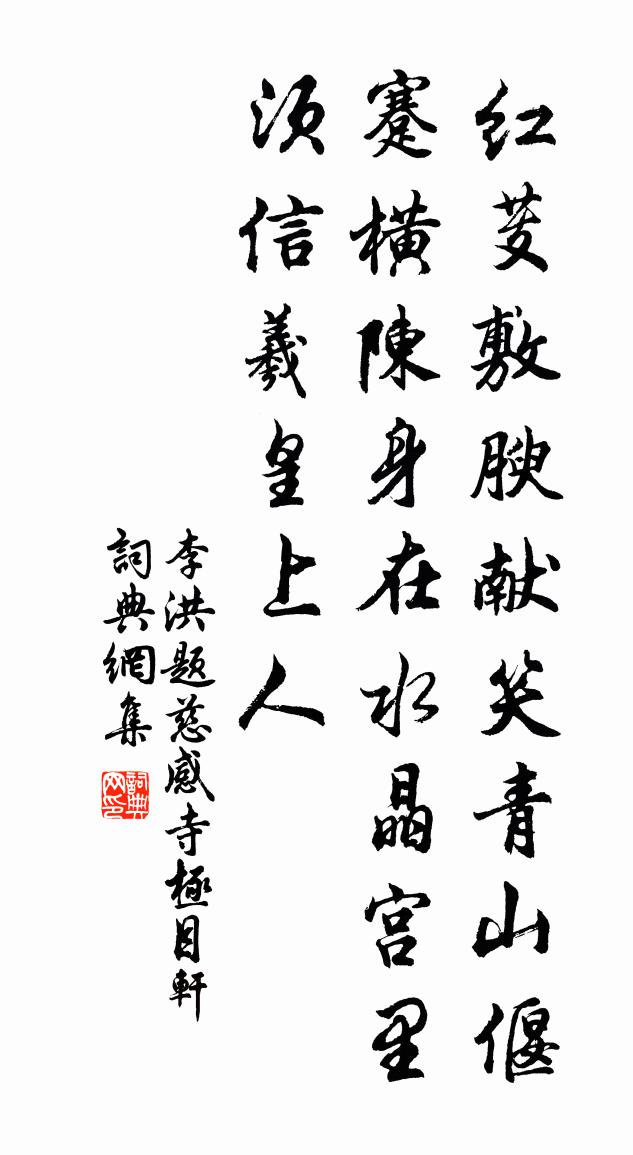 红芰敷腴献笑青山偃
蹇横陳身在水晶宫里
须信羲皇上人
李洪题慈感寺極目軒
詞典網集
詞典网印